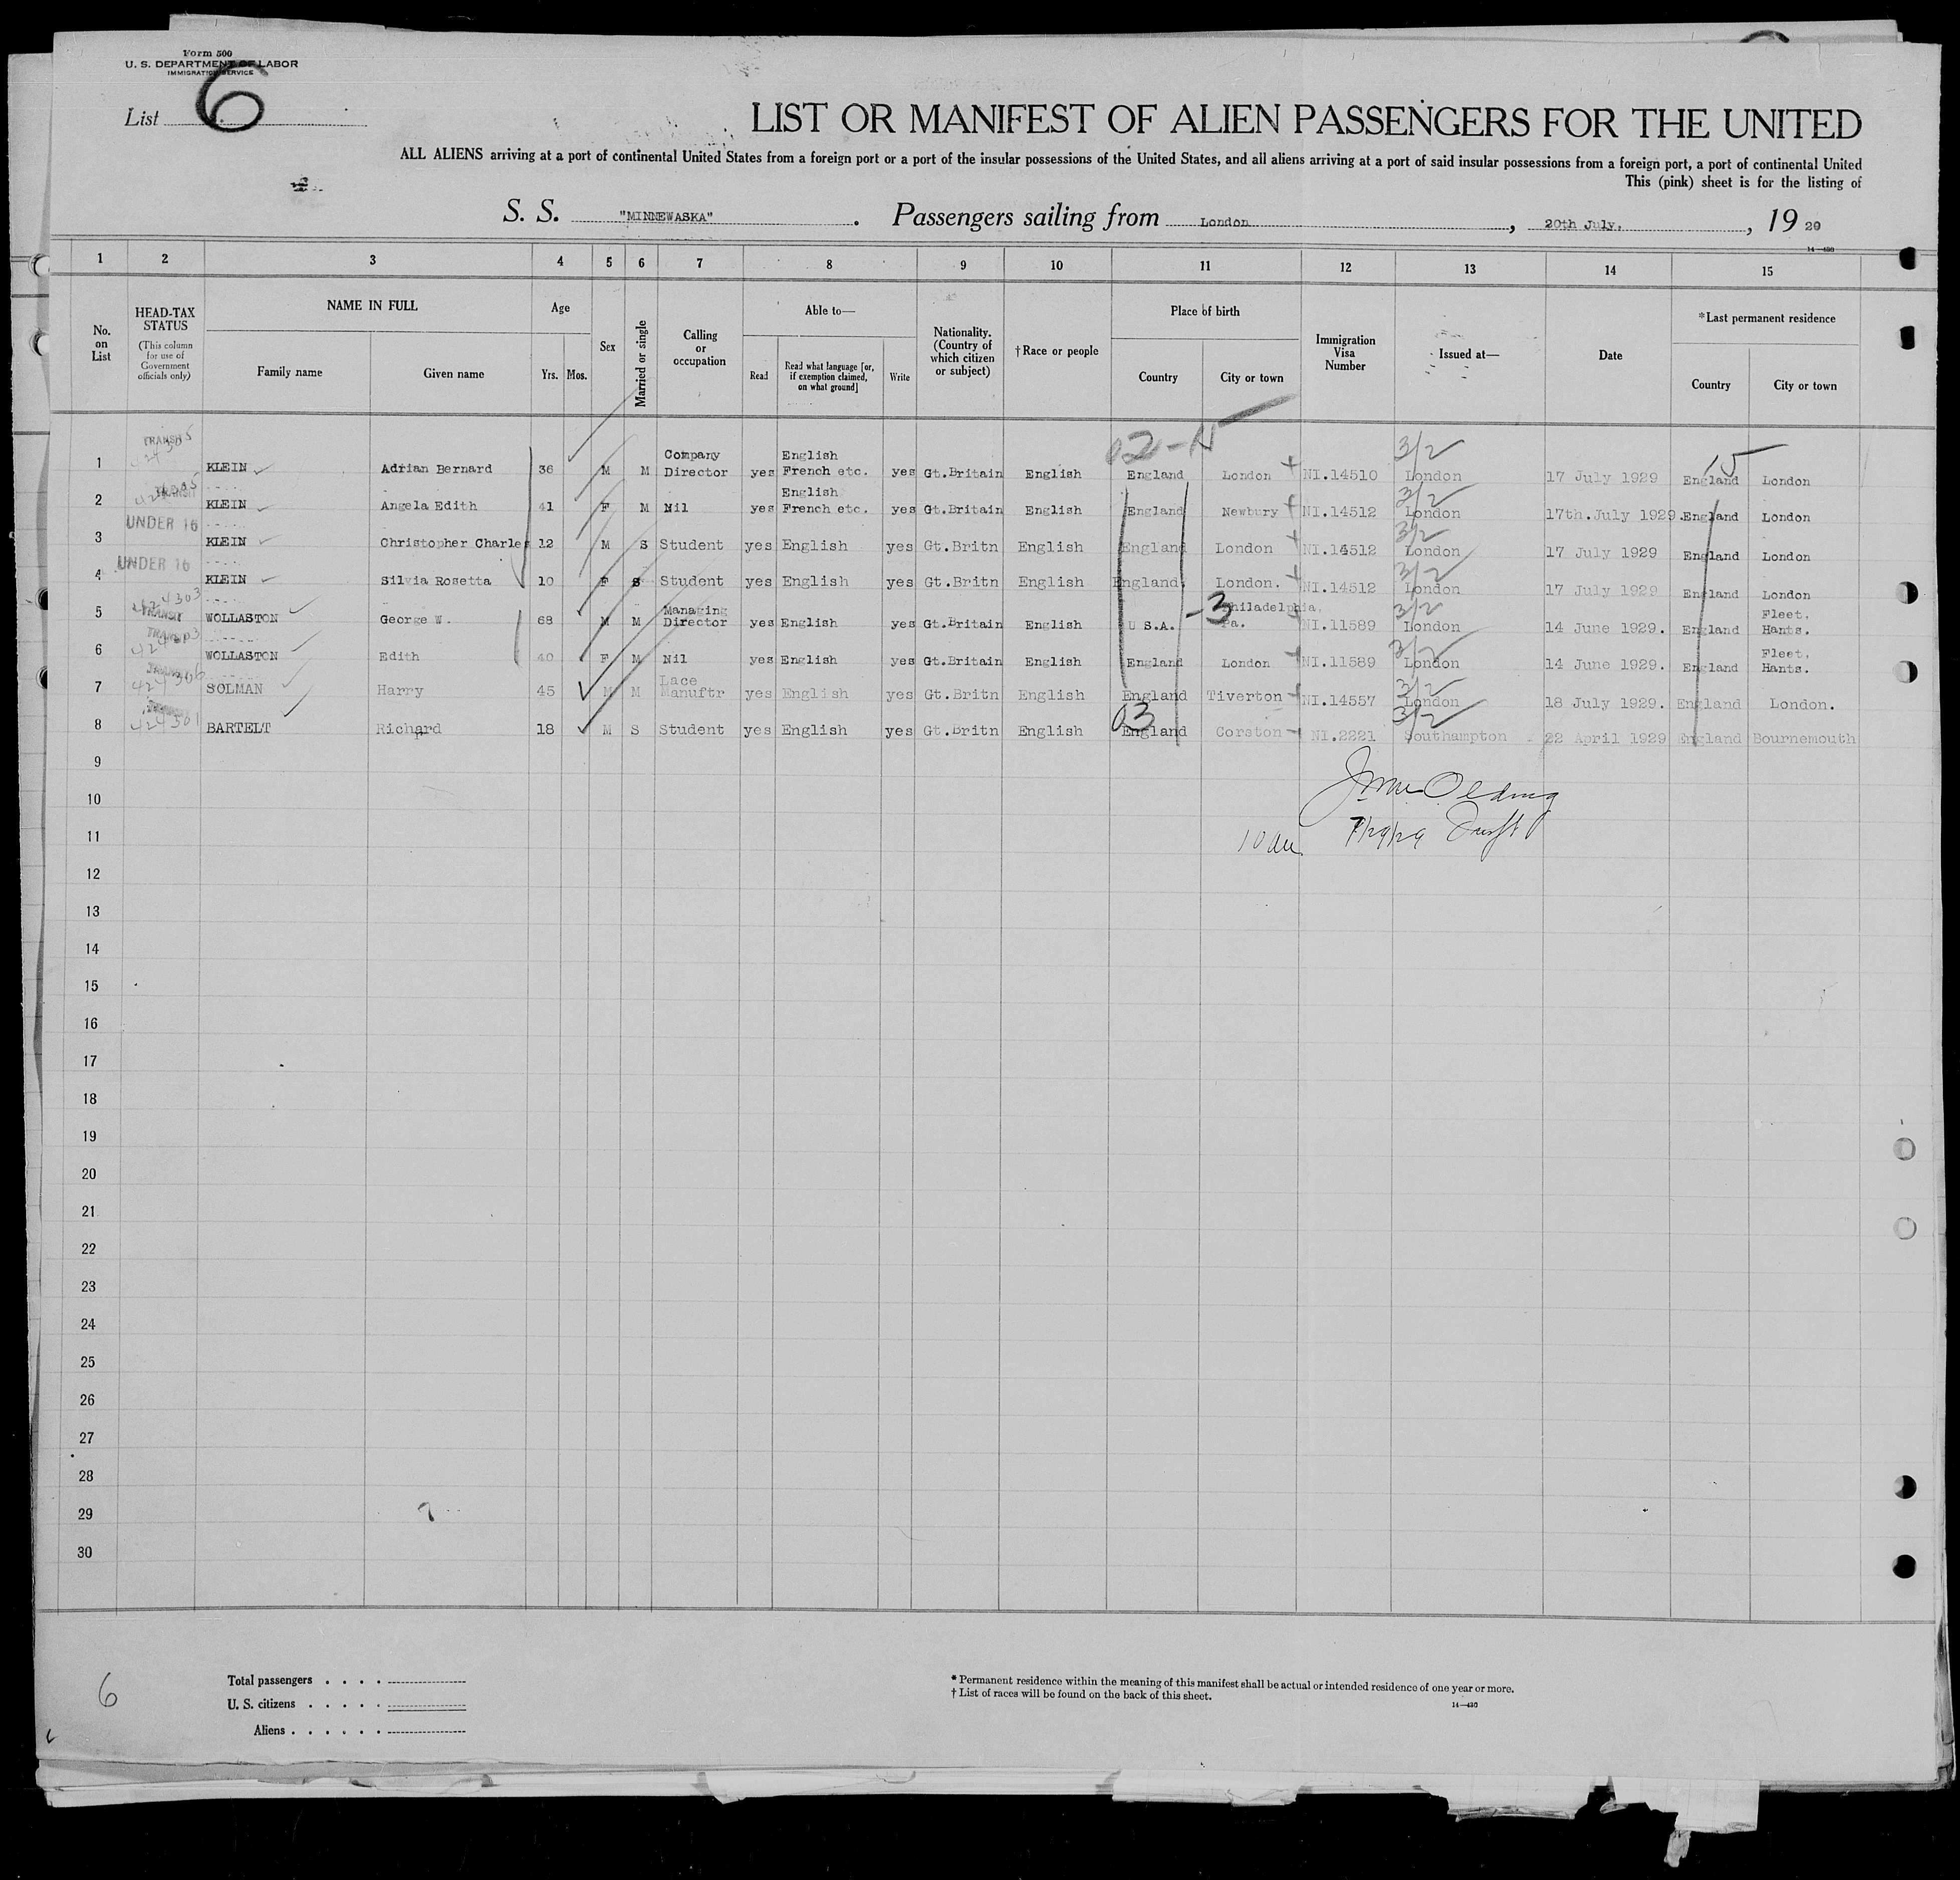 Form 500
U. S. DEPARTMENT OF LABOR
IMMIGRATION SERVICE
List 6
LIST OR MANIFEST OF ALIEN PASSENGERS FOR THE UNITED
ALL ALIENS arriving at a port of continental United States from a foreign port or a port of the insular possessions of the United States, and all aliens arriving at a port of said insular possessions from a foreign port, a port of continental United
This (pink) sheet is for the listing of
S. S. "MINNEWASKA" . Passengers sailing from London , 20th July, , 19 29
14—430
1 2 3 4 5 6 7 8 9 10 11 12 13 14 15
No. on List
HEAD-TAX STATUS
(This column for use of Government officials only)
NAME IN FULL
Family name
Given name
Age
Yrs. Mos.
Sex
Married or single
Calling or occupation
Able to—
Read
Read what language [or, if exemption claimed, on what ground]
Write
Nationality. (Country of which citizen or subject)
†Race or people
Place of birth
Country
City or town
Immigration Visa Number
Issued at—
Date
*Last permanent residence
Country
City or town
02-N 3/2 15
1 TRANSIT KLEIN Adrian Bernard 36 M M Company Director yes English French etc. yes Gt.Britain English England London NI.14510 London 17 July 1929 England London
2 TRANSIT KLEIN Angela Edith 41 F M Nil yes English French etc. yes Gt.Britain English England Newbury NI.14512 3/2 London 17th.July 1929. England London
3 UNDER 16 KLEIN Christopher Charles 12 M S Student yes English yes Gt.Britn English England London NI.14512 3/2 London 17 July 1929 England London
4 UNDER 16 KLEIN Silvia Rosetta 10 F S Student yes English yes Gt.Britn English England London. NI.14512 3/2 London 17 July 1929 England London
5 424303 TRANSIT WOLLASTON George W. 68 M M Managing Director yes English yes Gt.Britain English U S.A. -3 Philadelphia, Pa. NI.11589 3/2 London 14 June 1929. England Fleet. Hants.
6 TRANSIT WOLLASTON Edith 40 F M Nil yes English yes Gt.Britain English England London NI.11589 3/2 London 14 June 1929. England Fleet. Hants.
7 TRANSIT 424306 SOLMAN Harry 45 M M Lace Manuftr yes English yes Gt.Britn English England Tiverton NI.14557 3/2 London 18 July 1929. England London.
8 424301 BARTELT Richard 18 M S Student yes English yes Gt.Britn English 03 England Corston NI.2221 3/2 Southampton 22 April 1929 England Bournemouth
9
10
7/29/29
11
12
13
14
15
16
17
18
19
20
21
22
23
24
25
26
27
28
29
30
6
Total passengers . . . .
U. S. citizens . . . . .
Aliens . . . . . .
* Permanent residence within the meaning of this manifest shall be actual or intended residence of one year or more.
† List of races will be found on the back of this sheet.
14—430